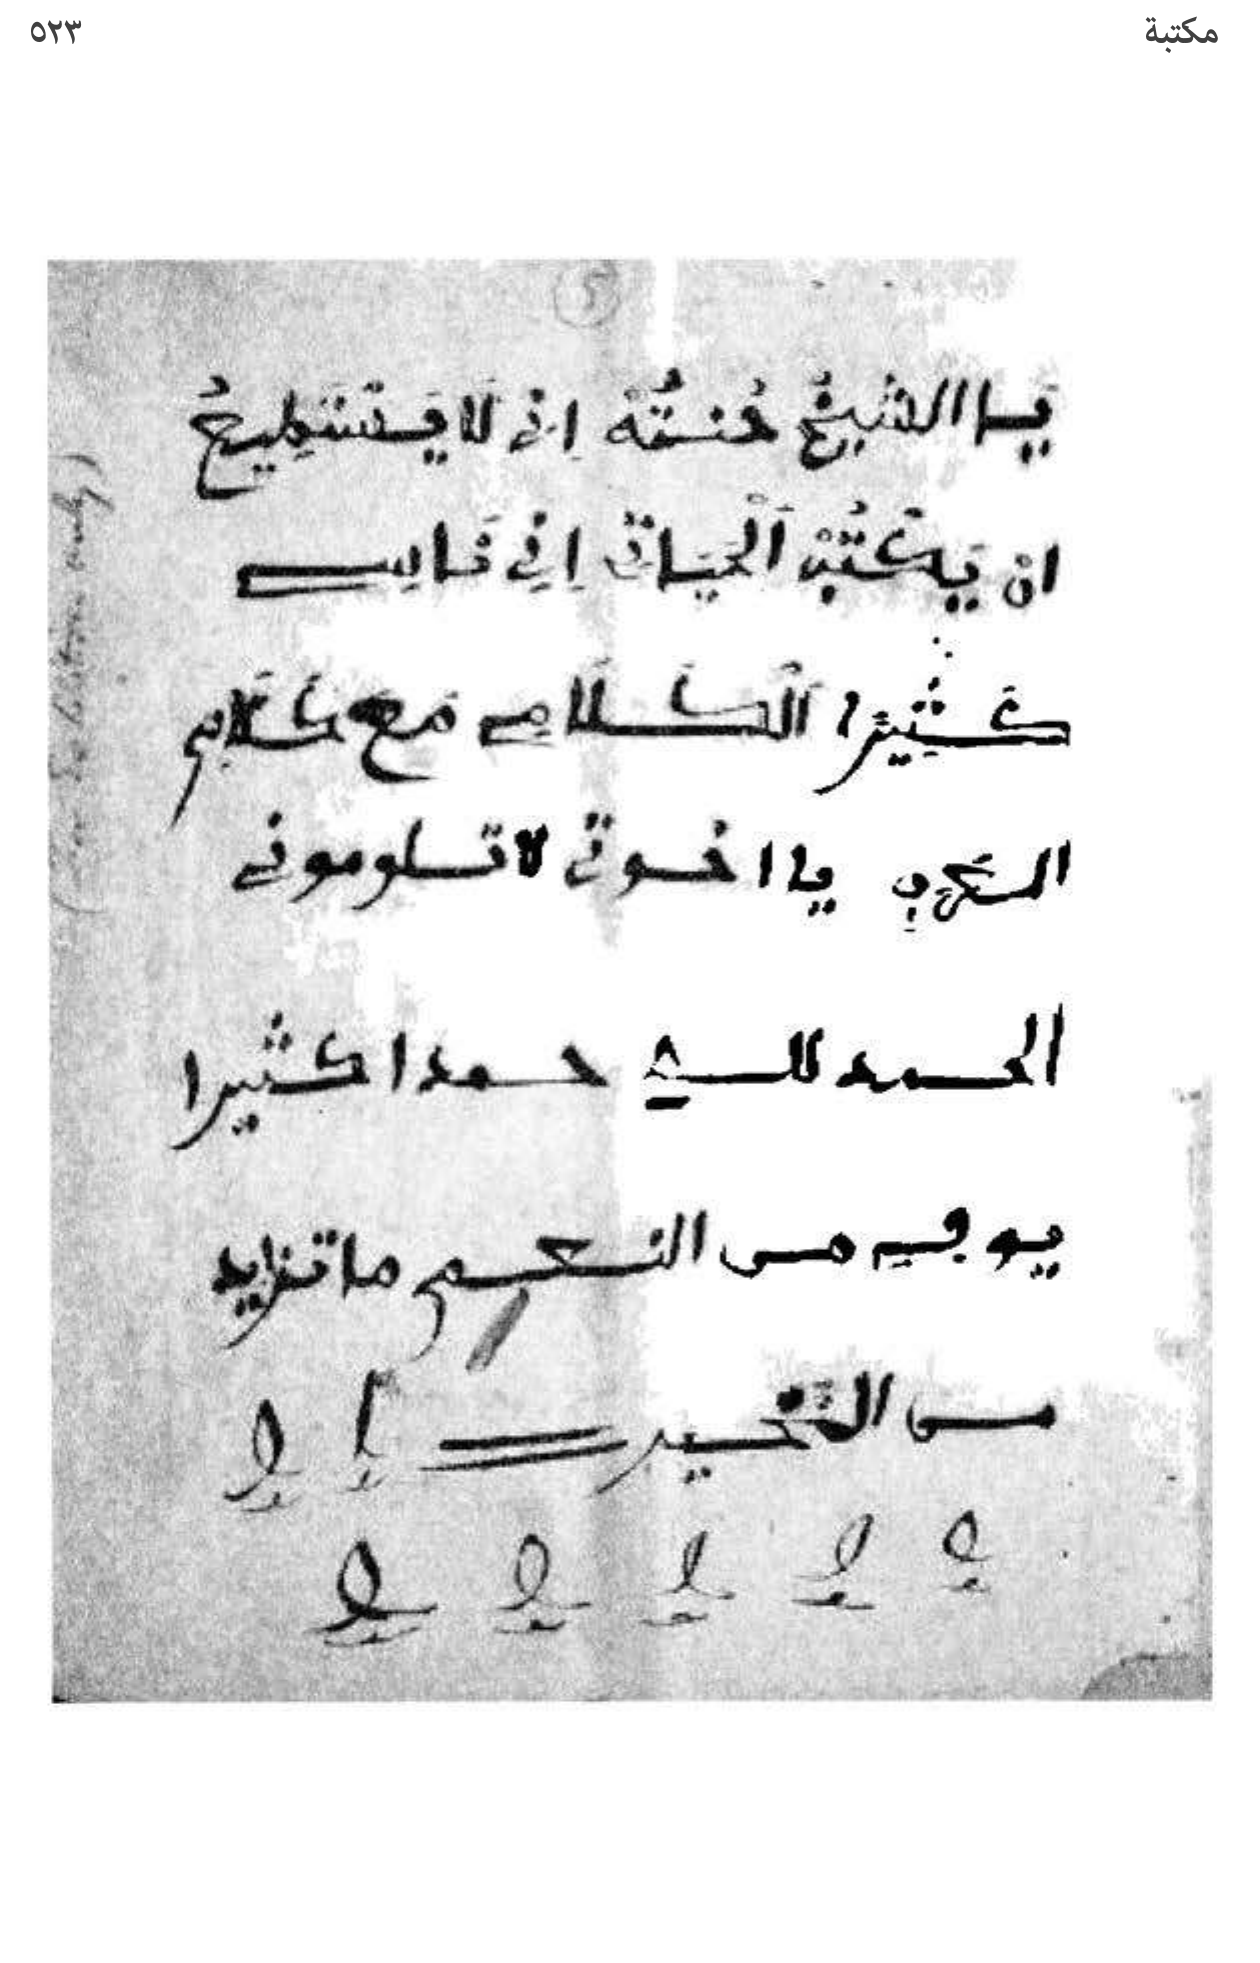 مكتبة
٥٢٣
يَا الشَّيخُ حُنتُهْ اِنِي لَا يَستَطِيعُ
ان يَكتُبْ اَلْحَيَاتِي اِنِي نَاسِي
كَثِيرًا اَلْكَلَامِي مَعَ كَلَامِ
يا اخوتي لا تلوموني
الحمد لله حمدا كثيرا
يوفيه من النعيم ما تزايد
من الخير